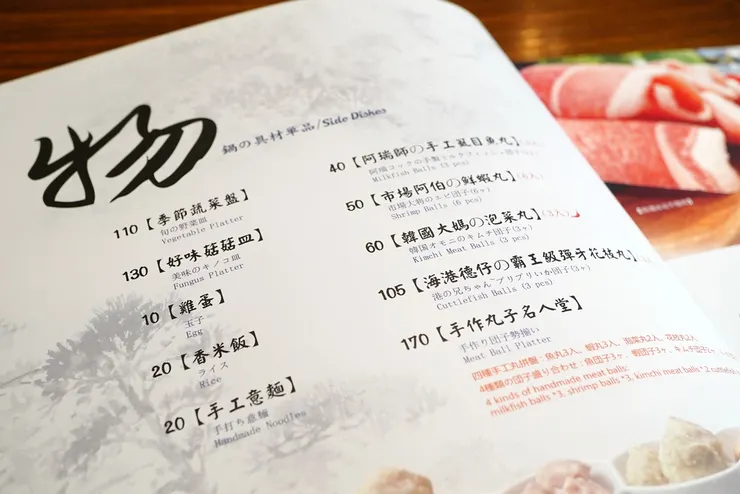 物
鍋の具材単品/Side Dishes
110【季節蔬菜盤】
旬の野菜皿
Vegetable Platter
130【好味菇菇皿】
美味のキノコ皿
Fungus Platter
10【雞蛋】
玉子
Egg
20【香米飯】
ライス
Rice
20【手工意麵】
手打ち意麺
Handmade Noodles
40【阿瑞師の手工虱目魚丸】
Milkfish Balls (3 pcs)
50【市場阿伯の鮮蝦丸】(6入)
市場大将のエビ団子(6ヶ)
Shrimp Balls (6 pcs)
60【韓國大媽の泡菜丸】(3入)
韓国オモニのキムチ団子(3ヶ)
Kimchi Meat Balls (3 pcs)
105【海港德仔の霸王級彈牙花枝丸】
港の兄ちゃん プリプリいか団子(3ヶ)
Cuttlefish Balls (3 pcs)
170【手作丸子名人堂】
手作り団子勢揃い
Meat Ball Platter
四種手工丸拼盤：魚丸3入、蝦丸3入、泡菜丸2入、花枝丸2入
4種類の団子盛り合わせ：魚団子3ヶ、蝦団子3ヶ、キムチ団子
4 kinds of handmade meat balls:
milkfish balls *3, shrimp balls *3, kimchi meat balls *2